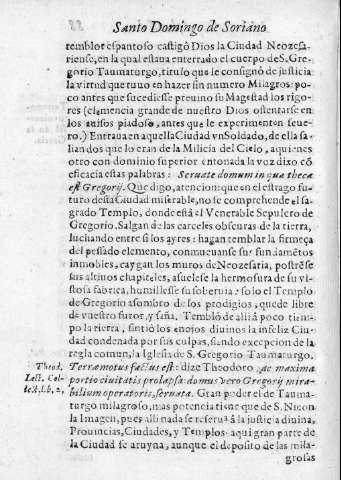 Santo Domingo de Soriano
temblor espantoso castigò Dios la Ciudad Neozesa-
riense, en la qual estaua enterrado el cuerpo de S. Gre-
gorio Taumaturgo, titulo que le consignò de justicia
la virtud que tuuo en hazer sin numero Milagros: po-
co antes que sucediesse preuino su Magestad los rigo-
res (clemencia grande de nuestro Dios ostentarse en
los auisos piadoso, antes que le experimenten seue-
ro.) Entraua en aquella Ciudad vn Soldado, de ella sa-
lian dos que lo eran de la Milicia del Cielo, a quienes
otro con dominio superior entonada la voz dixo cõ
eficacia estas palabras: Seruate domum in qua theca
est Gregorij. Que digo, atencion: que en el estrago fu-
turo desta Ciudad miserable, no se comprehende el sa-
grado Templo, donde està el Venerable Sepulcro de
Gregorio. Salgan de las carceles obscuras de la tierra,
luchando entre si los ayres: hagan temblar la firmeça
del pessado elemento, conmueuanse sus fundamẽtos
inmobles, caygan los muros de Neozesaria, postrẽse
sus altiuos chapiteles, asuelese la hermosura de su vi-
stosa fabrica, humillesse su soberuia: solo el Templo
de Gregorio asombro de los prodigios, quede libre
de vuestro furor, y saña. Temblò de alli â poco tiem-
po la tierra, sintiò los enojos diuinos la infeliz Ciu-
dad condenada por sus culpas, siendo excepcion de la
regla comun, la Iglesa de S. Gregorio Taumaturgo.
Theod. Terræmotus factus est: dize Theodoro, ac maxima
Lect. Col- portio ciuitatis prolapsa: domus vero Gregorij mira-
lect. lib. 2. bilium operatoris, seruata. Gran poder el de Tauma-
turgo milagroso, mas potencia tiene que de S. Nicon
la Imagen, pues alli nada se reseruâ â la justicia diuina,
Prouincias, Ciudades, y Templos: aqui gran parte de
la Ciudad se aruyna, aunque el deposito de las mila-
grosas